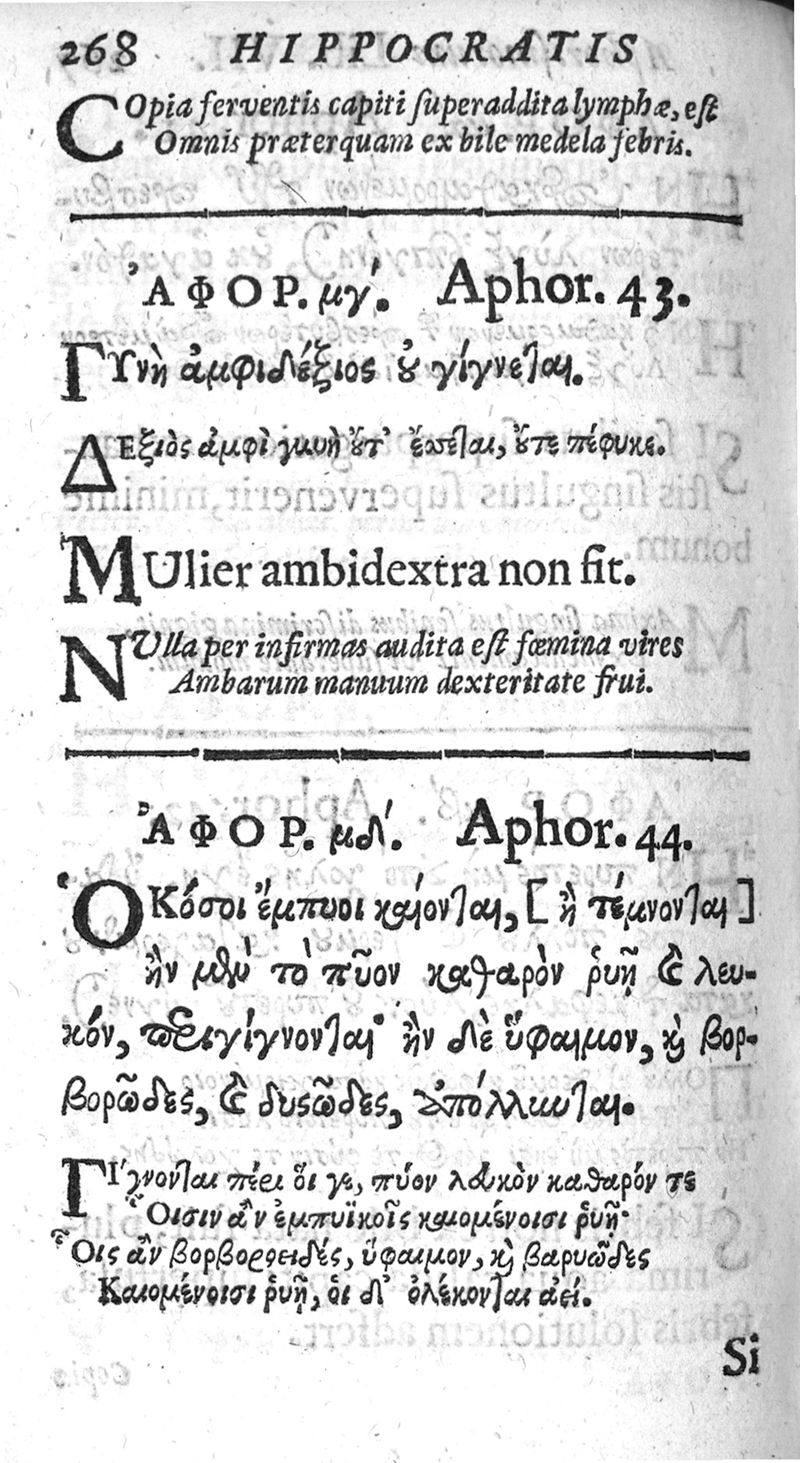 268 HIPPOCRATIS
COpia ferventis capiti superaddita lymphæ, est
Omnis præterquam ex bile medela febris.
ἈΦΟΡ. μγʹ. Aphor. 43.
ΓΥνὴ ἀμφιδέξιος ȣ γίγνεται.
ΔΕξιὸς ἀμφὶ γυνὴ ȣ̓́τ' ἔπεται, ȣ̓́τε πέφυκε.
MUlier ambidextra non fit.
NUlla per infirmas audita est fœmina vires
Ambarum manuum dexteritate frui.
ἈΦΟΡ. μδʹ. Aphor. 44.
ὉΚόσοι ἔμπυοι καίονται, [ἢ τέμνονται]
ἢν μὲν τὸ πῦον καθαρὸν ῥυῇ ϗ λευ-
κόν, περιγίγνονται· ἢν δὲ ὕφαιμον, ϗ βορ-
βορῶδες, ϗ δυσῶδες, ἀπόλλυνται.
ΓΊγνονται πέρι οἵ γε, πύον λευκὸν καθαρόν τε
Οἷσιν ἂν ἐμπυϊκοῖς καιομένοισι ῥυῇ·
Οἷς ἂν βορβοροειδές, ὕφαιμον, ϗ βαρυῶδες
Καιομένοισι ῥυῇ, οἱ δ' ὀλέκονται ἀεί.
Si